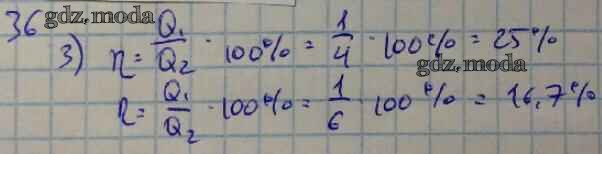 36 gdz.moda
3) η = Q₁/Q₂ · 100% = 1/4 · 100% = 25%
gdz.moda
η = Q₁/Q₂ · 100% = 1/6 · 100% = 16,7%